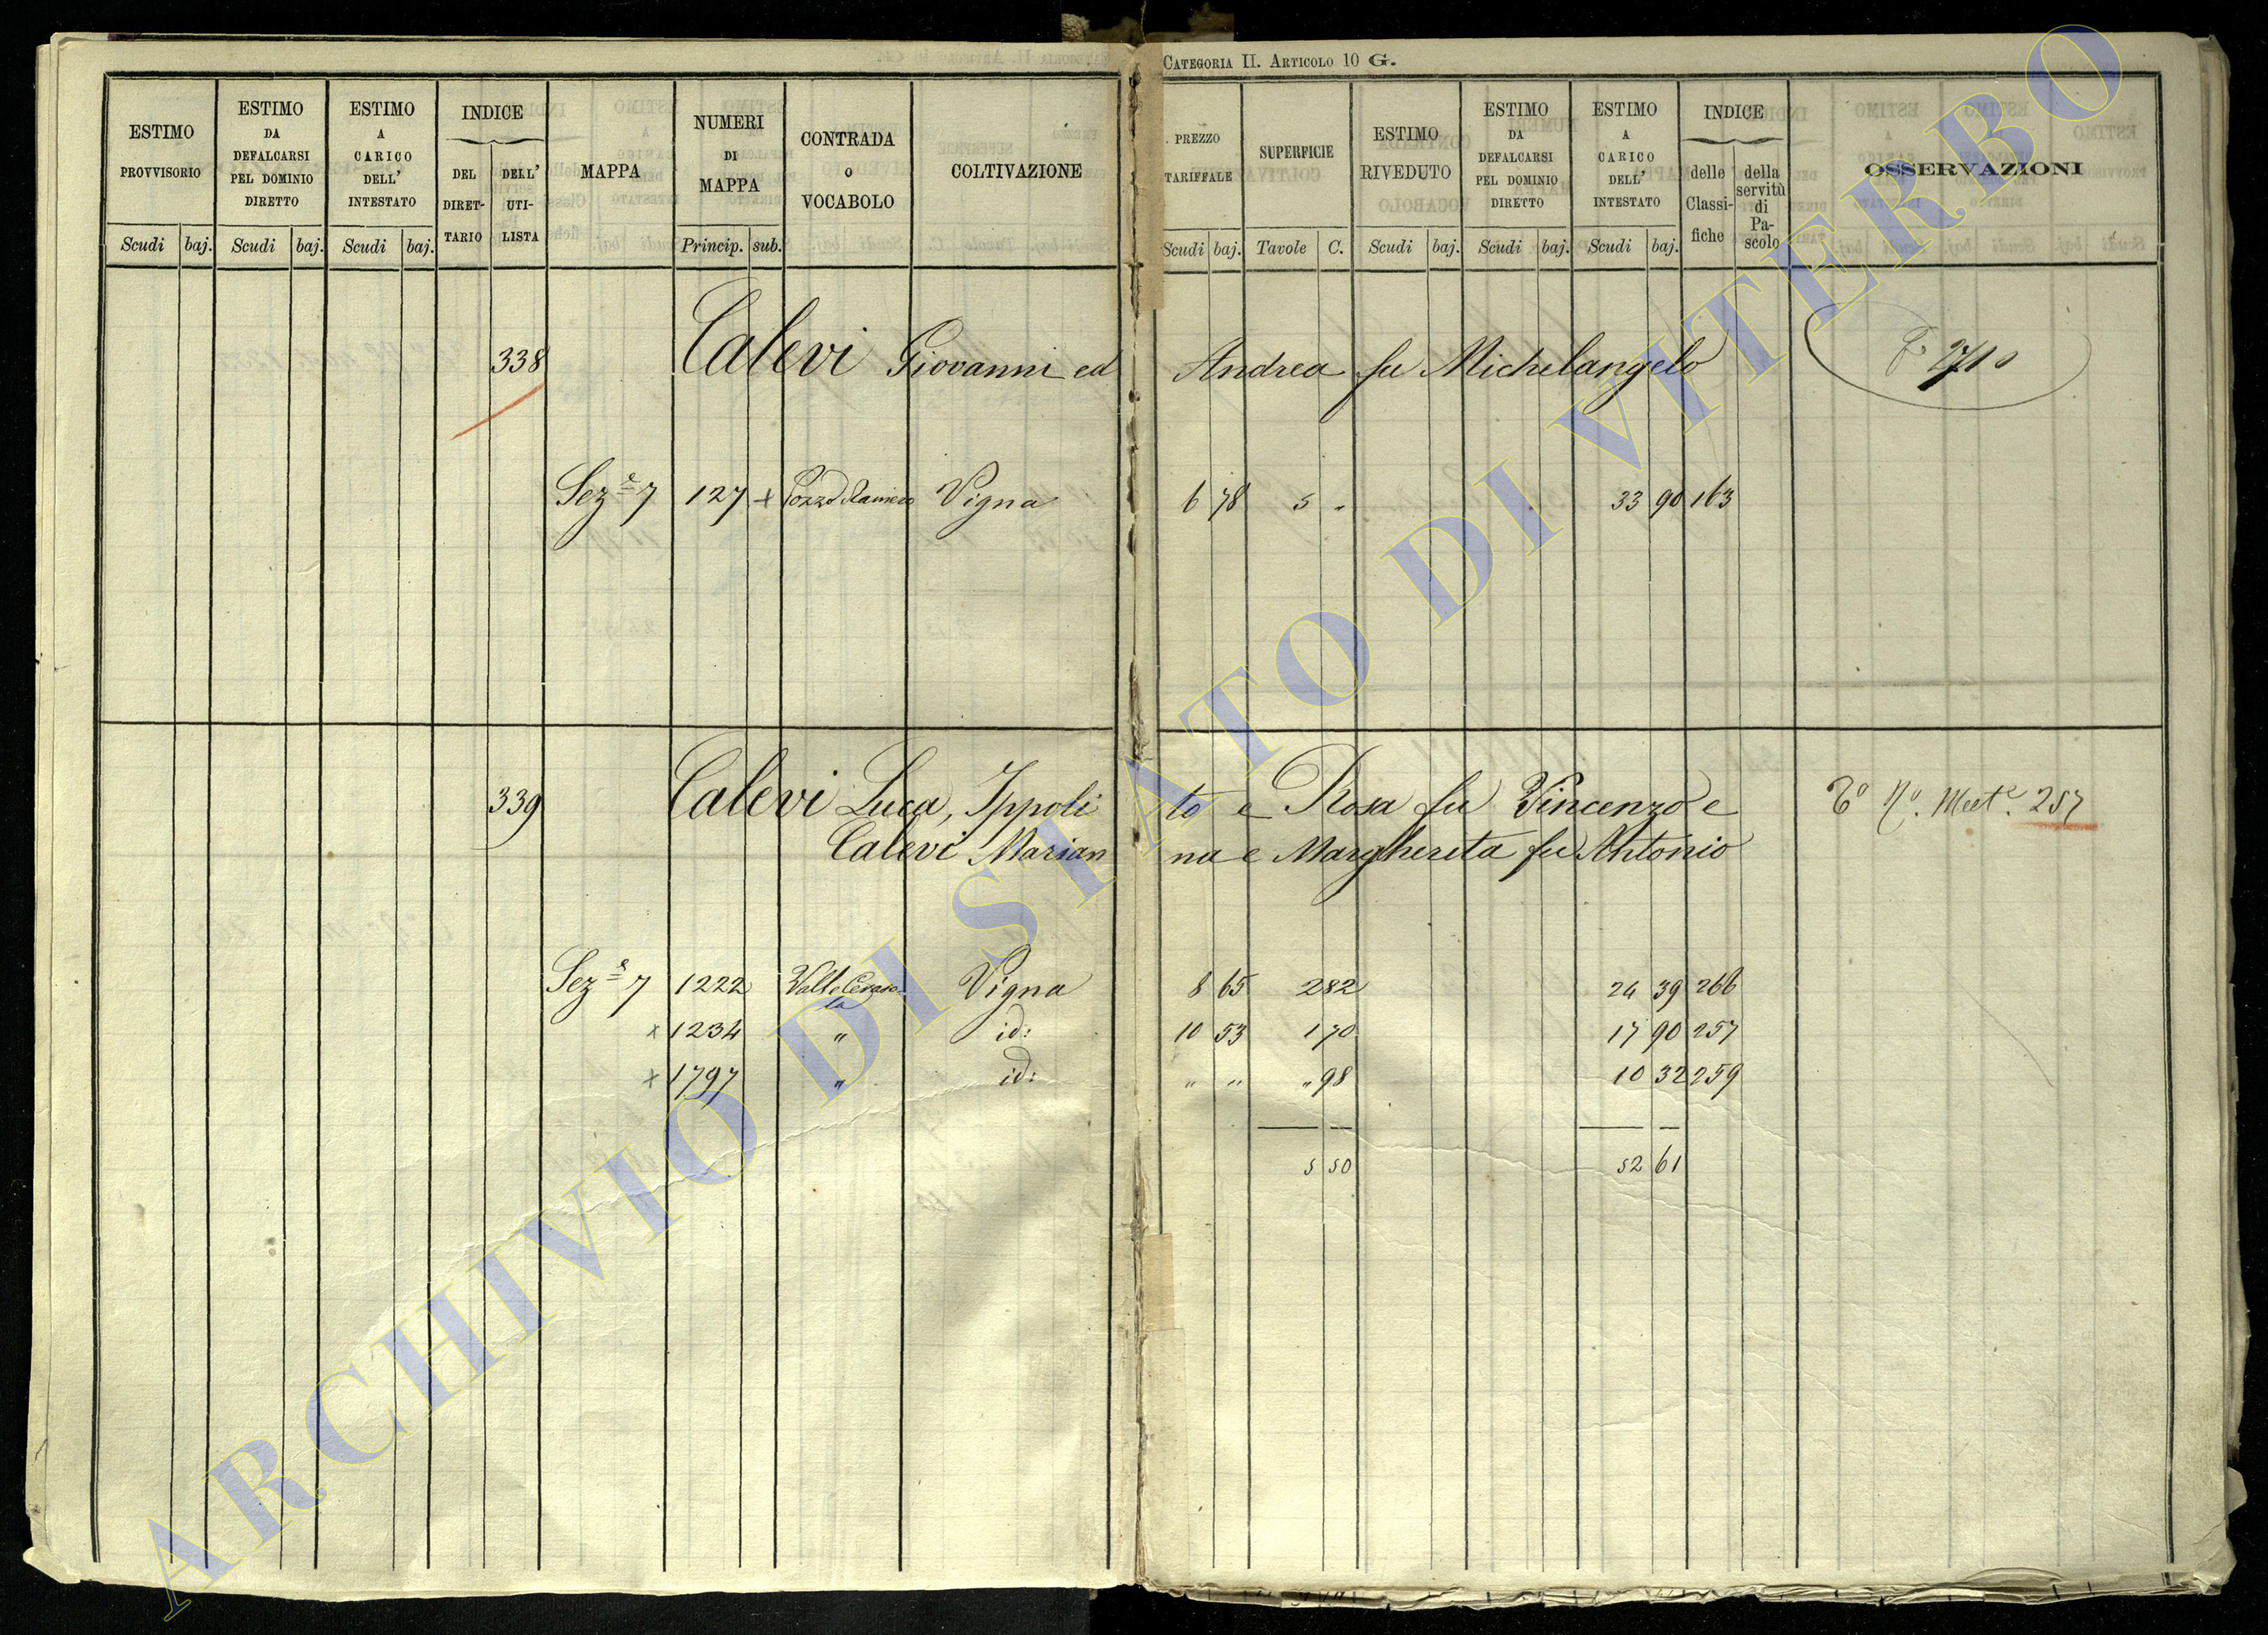 CATEGORIA II. ARTICOLO 10 G.
ESTIMO PROVVISORIO
Scudi baj.
ESTIMO DA DEFALCARSI PEL DOMINIO DIRETTO
Scudi baj.
ESTIMO A CARICO DELL' INTESTATO
Scudi baj.
INDICE
DEL DIRET-TARIO
DELL' UTI-LISTA
MAPPA
NUMERI DI MAPPA
Princip. sub.
CONTRADA o VOCABOLO
COLTIVAZIONE
PREZZO TARIFFALE
Scudi baj.
SUPERFICIE
Tavole C.
ESTIMO RIVEDUTO
Scudi baj.
ESTIMO DA DEFALCARSI PEL DOMINIO DIRETTO
Scudi baj.
ESTIMO A CARICO DELL' INTESTATO
Scudi baj.
INDICE
delle Classi-fiche
della servitù di Pa-scolo
OSSERVAZIONI
338 Calevi Giovanni ed Andrea fu Michelangelo
Sez.e 7 127 + Vigna 6 78 5 " 33 90 163
339 Calevi Luca, Ippolito e Rosa fu Vincenzo e 257
Calevi Marianna e Margherita fu Antonio
Sez.e 7 1222 Valle Cerasola Vigna 8 65 2 82 24 39 266
x 1234 " id: 10 53 1 70 17 90 257
x 1797 " id: " " " 98 10 32 259
5 50 52 61
ARCHIVIO DI STATO DI VITERBO